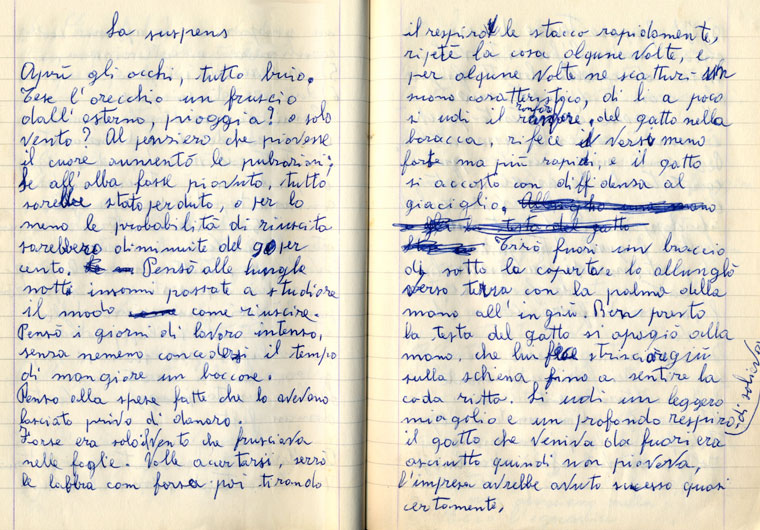 La suspens
Aprì gli occhi, tutto buio.
Tese l'orecchio un fruscio
dall'esterno, pioggia? o solo
vento? Al pensiero che piovesse
il cuore aumentò le pulsazioni;
Se all'alba fosse piovuto, tutto
sarebbe stato perduto, o per lo
meno le probabilità di riuscita
sarebbero diminuite del 90 per
cento. Pensò alle lunghe
notti insonni passate a studiare
il modo come riuscire.
Pensò i giorni di lavoro intenso,
senza nemeno concedersi il tempo
di mangiare un boccone.
Penso alla spese fatte che lo avevano
lasciato privo di danaro.
Forse era solo vento che frusciava
nelle foglie. Volle acertarsi, serrò
le labbra con forsa poi tirando
il respiro le stacco rapidamente,
ripetè la cosa algune volte, e
per algune volte ne scatturi un
suono caratteristico, di li a poco
si udi il del gatto nella
baracca, rifece il verso meno
forte ma più rapidi, e il gatto
si accosto con diffidensa al
giaciglio.
la testa del gatto
Tirò fuori un braccio
di sotto la coperta e lo allunghò
verso terra con la palma della
mano all'ingiù. Ben presto
la testa del gatto si apogiò alla
mano, che lui fece strisciare giù
sulla schiena, fino a sentire la
coda ritta. Si udi un leggero
miagolio e un profondo respiro
di solievo
il gatto che veniva da fuori era
asciutto quindi non pioveva,
l'impresa avrebbe avuto sucesso quasi
certamente,